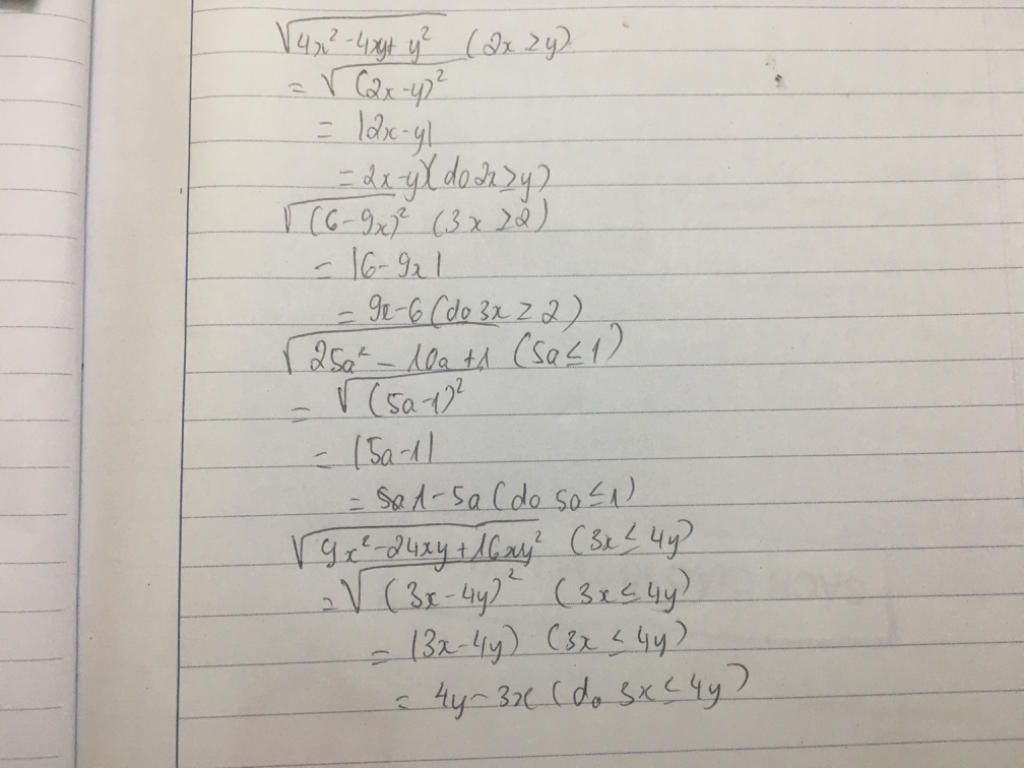 √(4x² - 4xy + y²) (2x ≥ y)
= √(2x-y)²
= |2x-y|
= 2x-y (do 2x ≥ y)
√(6-9x)² (3x ≥ 2)
= |6-9x|
= 9x-6 (do 3x ≥ 2)
√(25a² - 10a + 1) (5a ≤ 1)
= √(5a-1)²
= |5a-1|
= 1-5a (do 5a ≤ 1)
√(9x² - 24xy + 16y²) (3x ≤ 4y)
= √(3x-4y)² (3x ≤ 4y)
= |3x-4y| (3x ≤ 4y)
= 4y-3x (do 3x ≤ 4y)